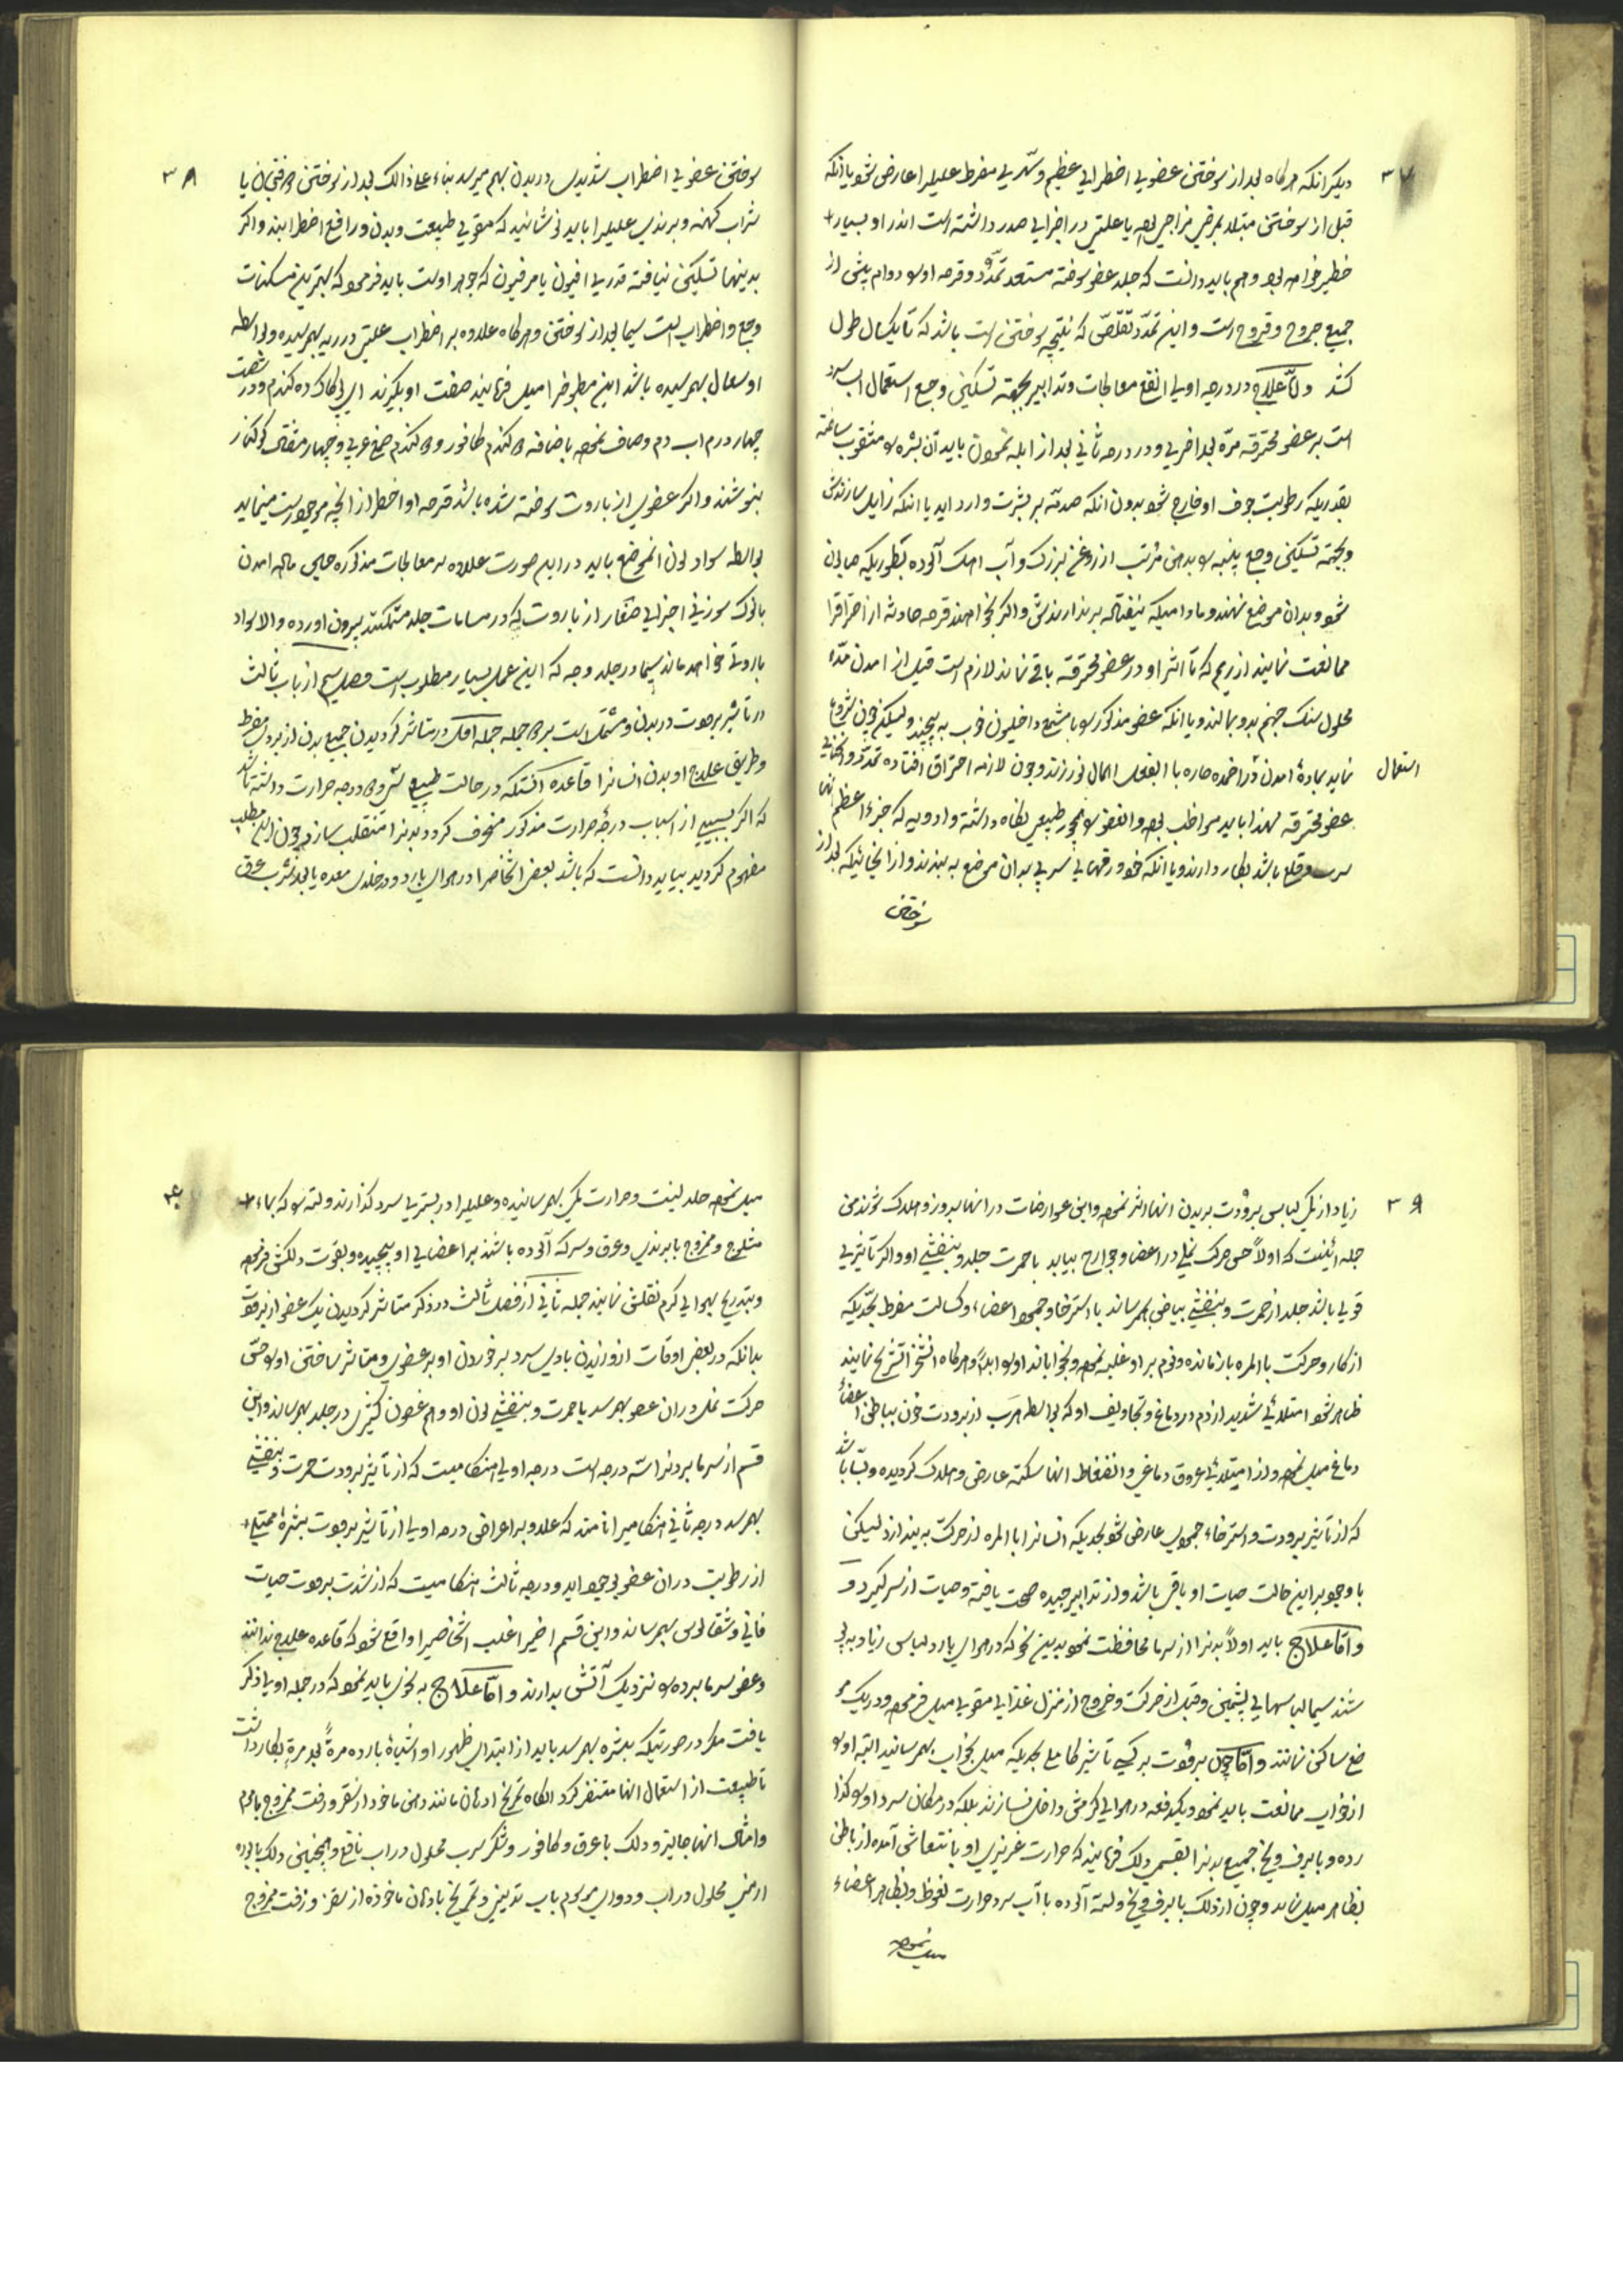 ۳۷
دیگر انکه هرکاه بعد از سوختن عضوی اضطرابی عظیم و تبی مفرط علیلرا عارض شود یا انکه
قبل از سوختن مبتلا بمرض مزاجی بوده یا علتی در اجزای صدر داشته است انذر او بسیار
خطیر خواهد بود و هم باید دانست که جلد عضو سوخته مستعد تمدد و قرحه او را دوام بیش از
جمیع جروح و قروح است و این تمدد و تقلص که نتیجه سوختن است باشد که تا یکسال طول
کشد و اما علاج در درجه اولی انفع معالجات و تدابیر بجهة تسکین وجع استعمال اب سرد
است بر عضو محترقه مرة بعد اخری و در درجه ثانی بعد از ابله نمودن باید آن بثره را مثقوب ساخته
بقدریکه رطوبت جوف او خارج شود بدون انکه صدمه بر بشرت وارد اید یا انکه زایل سازندش
و بجهة تسکین وجع پنبه را بدهن مرتب از روغن بزرک و آب اهک آلوده بطوریکه صابون
شود و بدان موضع نهند و مادامیکه نیفتاده برندارندش و اگر بخواهند قرحه حادثه از احتراق را
ممانعت نمایند از ریم که تا اثر او در عضو محترقه باقی نماند لازم است قبل از امدن مدة
محلول سنک جهنم بدو بمالند و یا انکه عضو مذکور را با مشمع داخلیون خوب به پیچند و لیکن چون شروع
نماید بمادة امدن ضماد حاره با الفعل استعمال نورزند و چون لازمه احتراق افتاده تمدد و انحنای
عضو محترقه لهذا باید مواظب بوده و انعضو را بمجور طبیعی نکاه داشته و ادویه که جزء اعظم انها
سرب و قلع باشد بکار دارند و یا انکه خود ورقهای سربی بدان موضع به بندند و از انجائیکه بعد از
سوختن
۳۸
سوختن عضوی اضطراب شدیدی در بدن بهم میرسد بناء علی ذالک بعد از سوختن هر فنجان یا
شراب کهنه و برندی علیلرا باید نوشانید که مقوی طبیعت و بدن و رافع اضطرابند و اگر
بدینها تسکین نیافته قدری افیون یا مرفیون که جوهر اوست باید فرمود که بهترین مسکنات
وجع و اضطراب است سیما بعد از سوختن و هرکاه علاوه بر اضطراب علتی در ریه بهمرسیده و بواسطه
او سعال بهمرسیده باشد این مطبوخ را میل فرمایند صفت او بگیرند ایپی کاک ده کندم و در شصت
چهار درم اب دم و صاف نموده باضافه ه کندم کافور و ه کندم صمغ عربی و چهار مثقال کلکنار
بنوشند و اگر عضوی از باروت سوخته شده باشد قرحه او اخطر از انچه موجود است مینماید
بواسطه سواد لون انموضع باید در این صورت علاوه بر معالجات مذکوره حین ماده امدن
بانوک سوزنی اجزای صغار از باروت که در مسامات جلد متمکنند بیرون اورده و الا سواد
باروتی خواهد ماند سیما در جلد وجه که این عمل بسیار مطلوب است فصل سیم از باب ثالث
در تاثیر برودت در بدن و مشتمل است بر ه جمله جمله اول در متاثر کردیدن جمیع بدن از برد مفرط
و طریق علاج او بدن انسانرا قاعده انستکه در حالت طبیعی سی و ه درجه حرارت داشته باشد
که اکر بسببی از اسباب درجه حرارت مذکور منحرف کردد بدنرا منقلب سازد چون این مطلب
مفهوم کردید بباید دانست که باشد بعضی اشخاص را در هوای بارد و در خلای معده یا بعد شرب عرق
۳۹
زیاد از تنک لباسی برودت بر بدن انها اثر نموده و این عوارضات در انها بروز و هلاک شوند من
جمله اینست که اولا حس حرکت نملی در اعضا و جوارح بیابد با حمرت جلد و بنفشی او و اکر تاثیر
قوی باشد جلد از حمرت و بنفشی بیاض بهمرساند با استرخا و جمود اعضاء و کسالت مفرط بحدیکه
از کار و حرکت بالمره بازمانده و نوم بر او غلبه نموده و بخواباند او را ابدا و هرکاه انشخص را تشریح نمایند
ظاهر شود امتلائی شدید از دم در دماغ و تجاویف او که بواسطه هرب از برودت خون بباطن اعضاء
دماغ میل نموده و از امتلائی عروق دماغی و انضغاط انها سکته عارض و هلاک کردیده و بسا باشد
که از تاثیر برودت و استرخاء جمودی عارض شود بحدیکه انسانرا بالمره از حرکت به اندازد لیکن
با وجود بر این حالت حیات او باقی باشد و از تدابیر جیده صحت یافته و حیات از سر گیرد و
و اما علاج باید اولا بدنرا از سرما محافظت نمود بدین نحو که در هوای بارد لباس زیاد به پو
شند سیما لباسهای پشمین و قبل از حرکت و خروج از منزل غذای مقوی میل فرموده و در یک مو
ضع ساکن نمانند و اما چون برودت بر کسی تاثیر کامل بحدیکه میل بخواب بهمرسانید البته او را
از خواب ممانعت باید نمود و یکدفعه در هوای گرمش داخل نسازند بلکه در مکان سرد او را گذا
رده و با برف و یخ جمیع بدنرا القسمی دلک فرمایند که حرارت غریزی او بانتعاش آمده از باطن
بظاهر میل نماید و چون از دلک با برف و یخ و لته آلوده با آب سرد حرارت محفوظ و بظاهر اعضاء
میل نموده
۴۰
میل نموده جلد لینت و حرارت یک بهمرسانیده و علیلرا در بستری سرد گذارند و لته را که بماء
مثلوج و ممزوج با برندی و عرق و سرکه آلوده باشند بر اعضای او پیچیده و بقوت دلکش فرموده
و بتدریج بهوای کرم نقلش نمایند جمله ثانی از فصل ثالث در ذکر متاثر کردیدن یک عضو از برودت
بدانکه در بعضی اوقات از وزیدن بادی سرد بر خوردن او بر عضوی و متاثر ساختن او را حس
حرکت نملی در ان عضو بهم رسد با حمرت و بنفشی لون او و هم غضون کثیری در جلد بهمرساند و این
قسم از سرما بردنرا سه درجه است درجه اولی هنکامیست که از تاثیر برودت حمرت و بنفشی
بهمرسد درجه ثانی هنکامیرا نامند که علاوه بر اعراض درجه اولی از تاثیر برودت بثره ممتلی
از رطوبت در ان عضو بوجود اید و درجه ثالث هنکامیست که از شدت برودت حیات
فانی و شقاقلوس بهمرساند و این قسم اخیر اغلب اشخاصیرا واقع شود که قاعده علاج ندانند
و عضو سرما برده را نزدیک آتش بدارند و اما علاج به نحوی باید نمود که در جمله اولی ذکر
یافت مگر در صورتیکه بثره بهمرسد باید از ابتدای ظهور او اشیاء بارده مرة بعد مرة بکار داشت
تا طبیعت از استعمال انها متنفر کردد انکاه تمریخ ادهان مانند دهن ماخوذ از نقر و زفت ممزوج باهم
و امثال انها جایز و دلک باعرق و کافور و شکر سرب محلول در اب نافع و همچنین دلک با بوره
ارمنی محلول در اب و دوای موسوم باب تدیین و تمریخ بادهان ماخوذه از نقر و زفت ممزوج